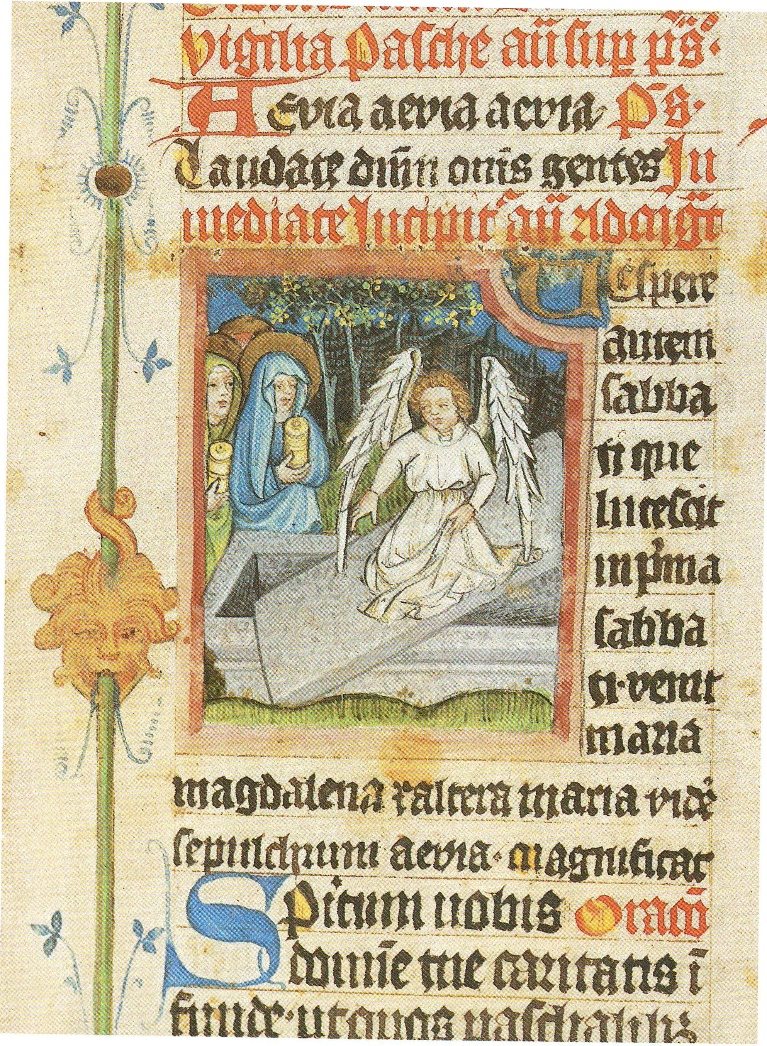 vigilia pasche añ sup ps̄·
Aevia aevia aevia Ps·
Laudate dn̄m om̄s gentes In
mediate Incipit añ Ad
Vespere
autem
sabba
ti que
lucescit
in pͥma
sabba
ti· venit
maria
magdalena ⁊ altera maria vidē
sepulchrum aevia· magnificat
Spͥitum nobis Oracō
domīe tue caritatis ī
funde· ut quos paschalibꝫ